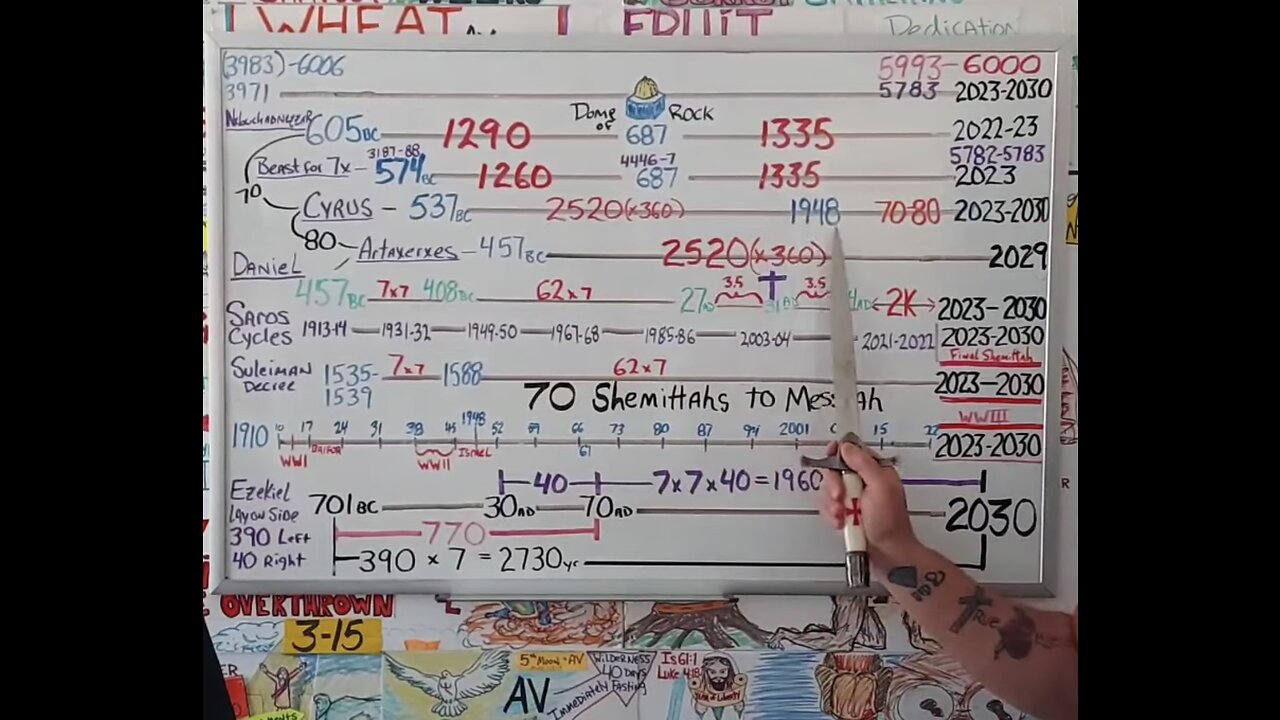 WHEAT
FRUIT
Dedication
(3983)-6006 5993-6000
3971 5783 2023-2030
Nebuchadnezzar 605 BC 1290 Dome of Rock 687 1335 2022-23
5782-5783
Beast for 7x - 3187-88 574 BC 1260 4446-7 687 1335 2023
70
Cyrus - 537 BC 2520(x360) 1948 70-80 2023-2030
80 Artaxerxes - 457 BC 2520(x360) 2029
Daniel
457 BC 7x7 408 BC 62x7 27 AD 3.5 31 AD 3.5 4 AD 2K 2023-2030
Saros Cycles 1913-14 1931-32 1949-50 1967-68 1985-86 2003-04 2021-2022 2023-2030
Final Shemittah
Suleiman Decree 1535-1539 7x7 1588 62x7 2023-2030
70 Shemittahs to Mes ah
WWIII
1910 10 17 24 31 38 45 1948 52 59 66 67 73 80 87 94 2001 15 22 2023-2030
WWI Balfor WWII Israel
40 7x7x40=1960
Ezekiel Lay on Side 701 BC 30 AD 70 AD 2030
390 Left 770
40 Right 390 x 7 = 2730 yr
OVERTHROWN
3-15
5th Moon - AV
AV
Wilderness
40 Days
Immediately Fasting
Is 61:1
Luke 4:18